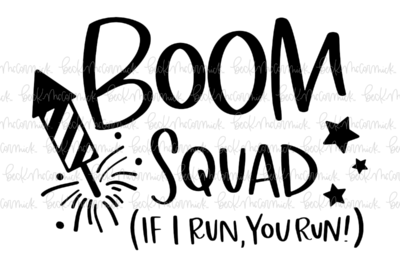 BOOM
SQUAD
(IF I RUN, YOU RUN!)